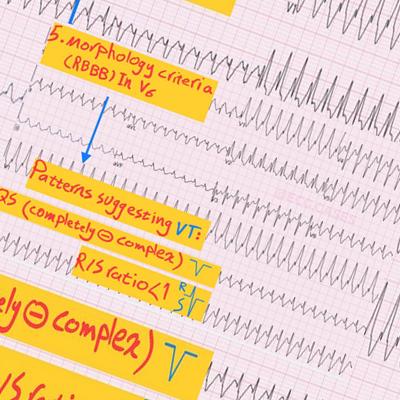 5. morphology criteria
(RBBB) In V6
Patterns suggesting VT:
QS (completely ⊖ complex)
R/S ratio<1 R
S
ely ⊖ complex)
/S ratio